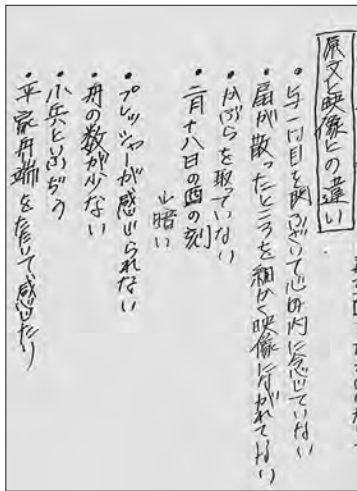 原文と映像との違い
・与一は目を閉ふさいで心の内に念じていない
・扇が散ったところを細かく映像にながれてない
・かぶらを取っていない
・二月十八日の酉の刻
↓暗い
・プレッシャーが感じられない
・舟の数が少ない
・小兵といふぢう
・平家舟端をたたいて感じたり